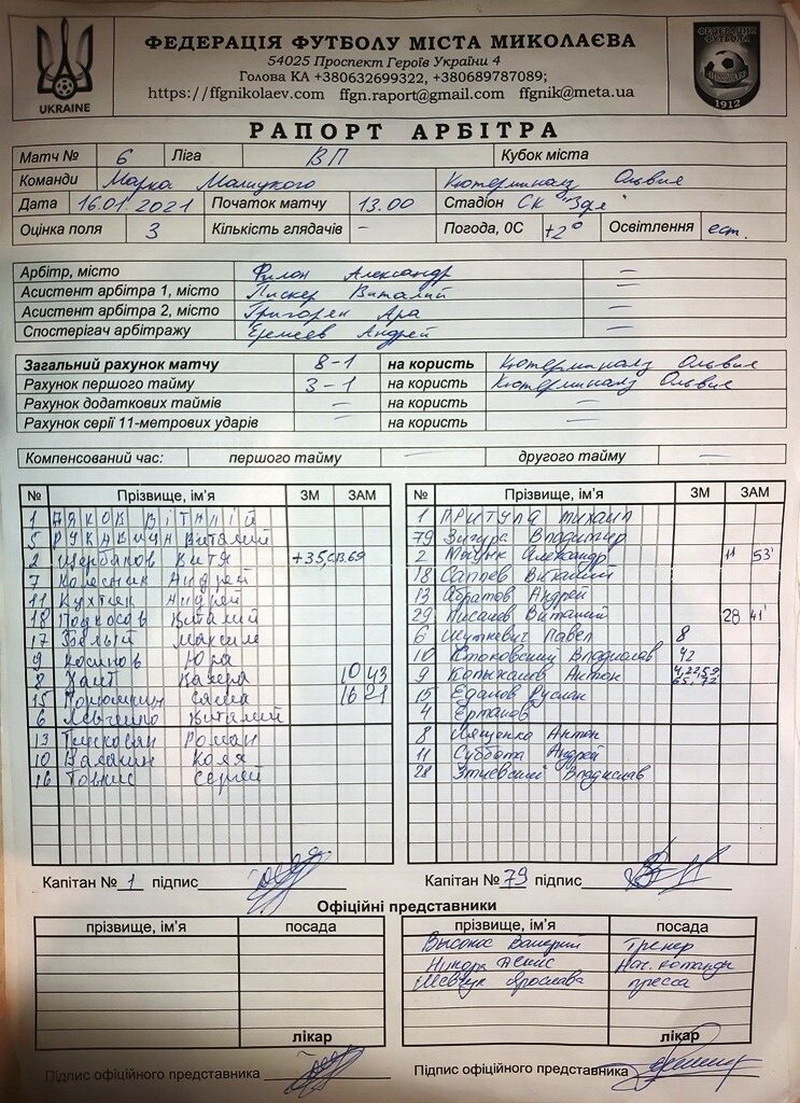 ФЕДЕРАЦІЯ ФУТБОЛУ МІСТА МИКОЛАЄВА
54025 Проспект Героїв України 4
Голова КА +380632699322, +380689787089;
https://ffgnikolaev.com ffgn.raport@gmail.com ffgnik@meta.ua
UKRAINE
ФЕДЕРАЦИЯ ФУТБОЛА
1912
РАПОРТ АРБІТРА
Матч № 6 Ліга ВП Кубок міста
Команди Марка Малицкого Кютерминалз Ольвия
Дата 16.01.2021 Початок матчу 13.00 Стадіон СК "Заря"
Оцінка поля 3 Кількість глядачів – Погода, 0С +2° Освітлення ест.
Арбітр, місто Филон Александр –
Асистент арбітра 1, місто Пискер Виталий –
Асистент арбітра 2, місто Григорян Ара –
Спостерігач арбітражу Еремеев Андрей –
Загальний рахунок матчу 8-1 на користь Кютерминалз Ольвия
Рахунок першого тайму 3-1 на користь Кютерминалз Ольвия
Рахунок додаткових таймів – на користь –
Рахунок серії 11-метрових ударів – на користь –
Компенсований час: першого тайму – другого тайму –
№ Прізвище, ім'я ЗМ ЗАМ
1 Дяков Віталій
5 Рукавицин Виталий
2 Щербаков Витя
7 Колесник Андрей
11 Кухтик Андрей
18 Подкосов Виталий
17 Белый Максим
9 Косинов Юра
8 Хаит Валера 10 43
15 Саша 16 21
6 Левченко Виталий
13 Роман
10 Коля
16 Товкис Сергей
№ Прізвище, ім'я ЗМ ЗАМ
1 Притула Михаил
79 Зигура Владимир
2 Александр 11 53'
18 Саплев Виталий
13 Абратов Андрей
29 Писанов Виталий 28 41'
6 Шуткевич Павел 8
10 Владислав 42
9 Копыханов Антон
15 Еданов Руслан
4 Ертанов
8 Лященко Антон
11 Суббота Андрей
28 Владислав
Капітан № 1 підпис
Капітан № 79 підпис
Офіційні представники
прізвище, ім'я посада
лікар
Підпис офіційного представника
прізвище, ім'я посада
Валерий Тренер
Денис Нач. команды
Шевчук Ярослава пресса
лікар
Підпис офіційного представника